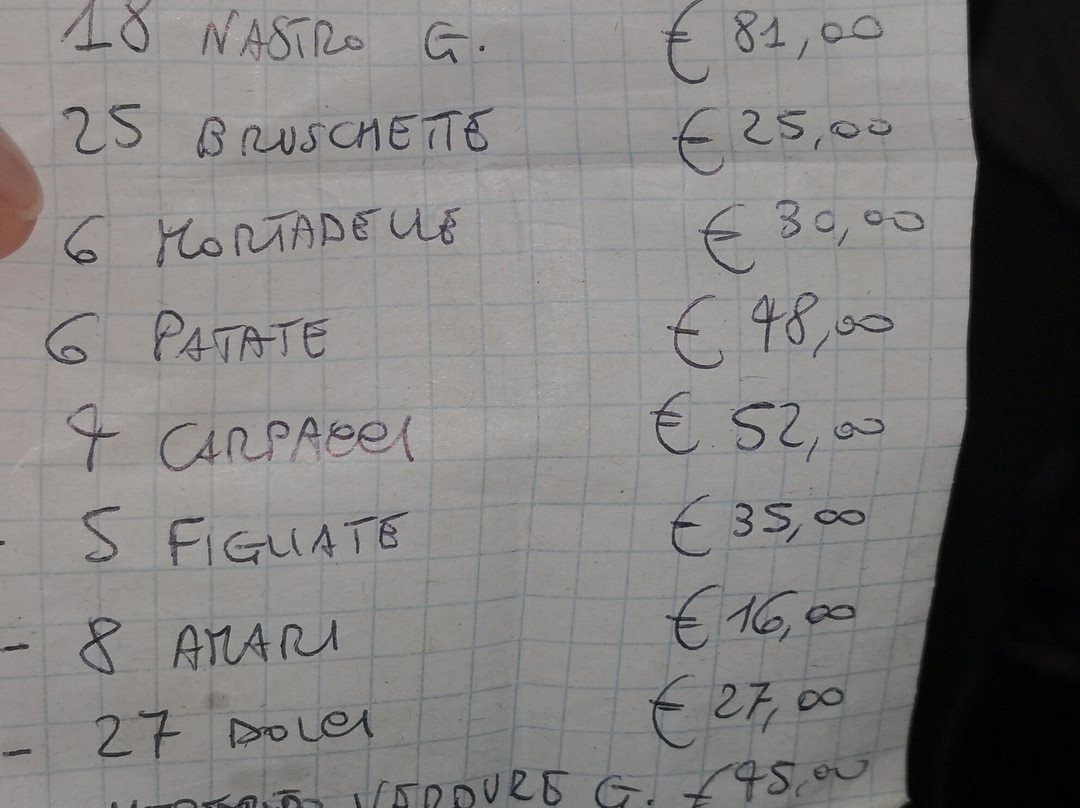 18 NASTRO G. € 81,00
25 BRUSCHETTE € 25,00
6 MORTADELLE € 30,00
6 PATATE € 48,00
4 CARPACCI € 52,00
5 FIGLIATE € 35,00
- 8 AMARI € 16,00
- 27 DOLCI € 27,00
VERDURE G. € 45,00